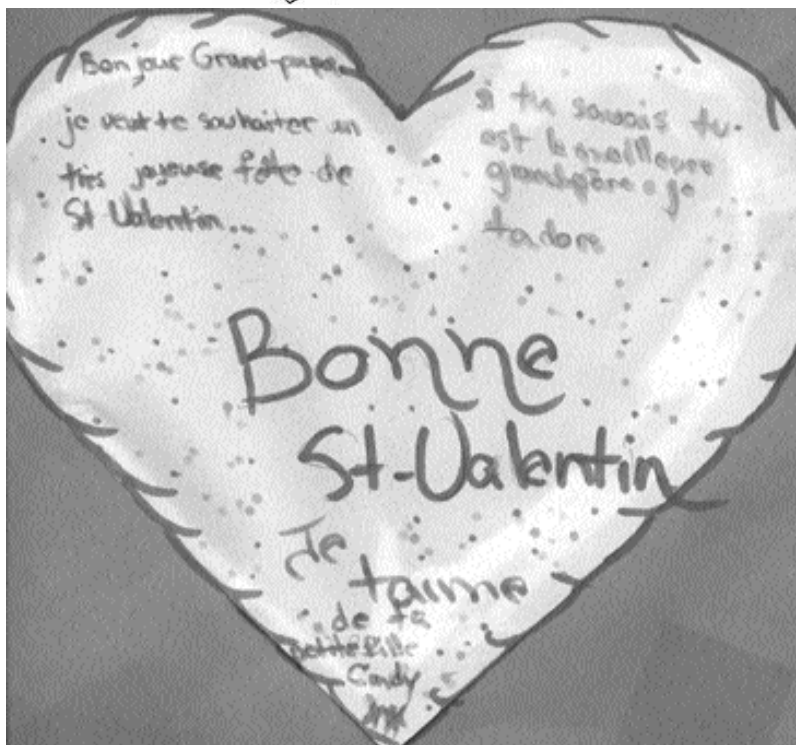 Bonjour Grand-papa
je veut te souhaiter un
très joyeuse fête de
St Valentin...
si tu savais tu
est le meilleure
grand-père e je
tadore
Bonne
St-Valentin
Je
taime
de ta
petite fille
Cindy